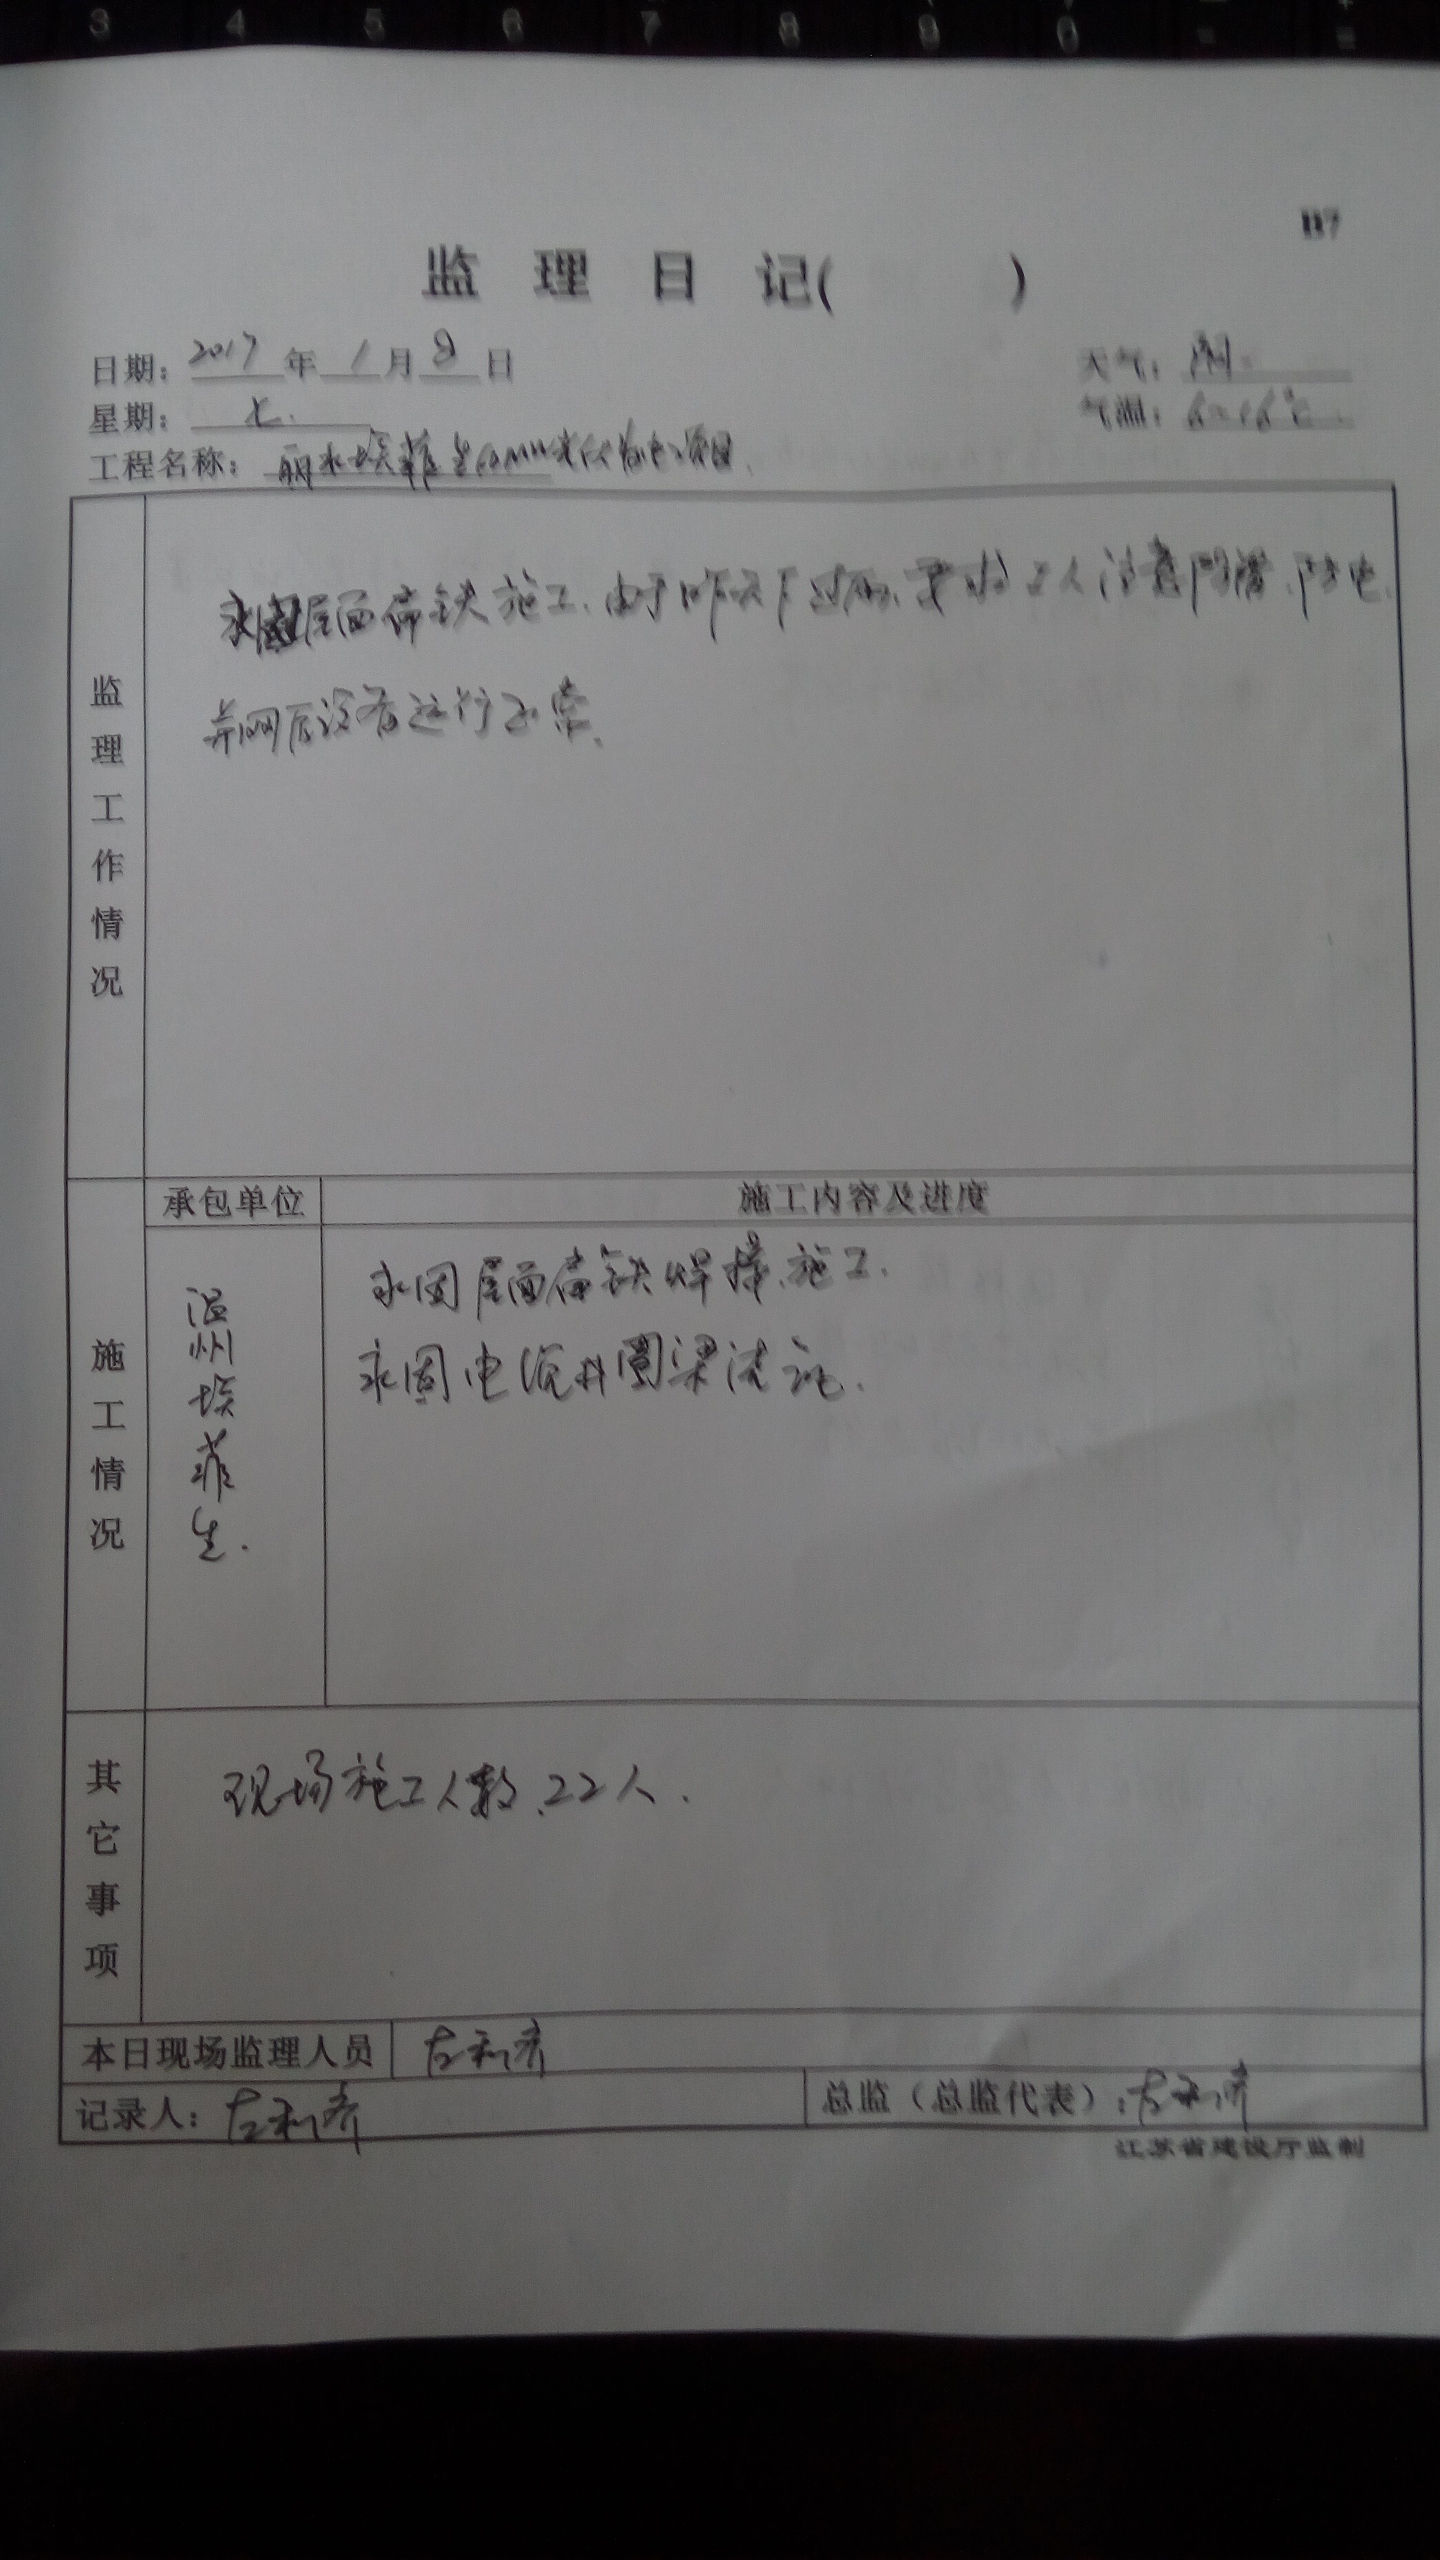 3 4 5 6 7 8 9 0
B7
监 理 日 记( )
日期: 2017 年 1 月 8 日 天气: 阴
星期: 七. 气温: 6~16℃
工程名称: 丽水埃菲生 光伏发电项目.
监理工作情况
永固屋面扁铁施工.由于昨天下过雨、要求工人注意防滑、防电.
并网后设备运行正常.
施工情况
承包单位 施工内容及进度
温州埃菲生.
永固屋面扁铁焊接.施工.
永固电缆井圈梁浇
其它事项
现场施工人数、22人.
本日现场监理人员 左利齐
记录人: 左利齐 总监（总监代表）: 左利齐
江苏省建设厅监制